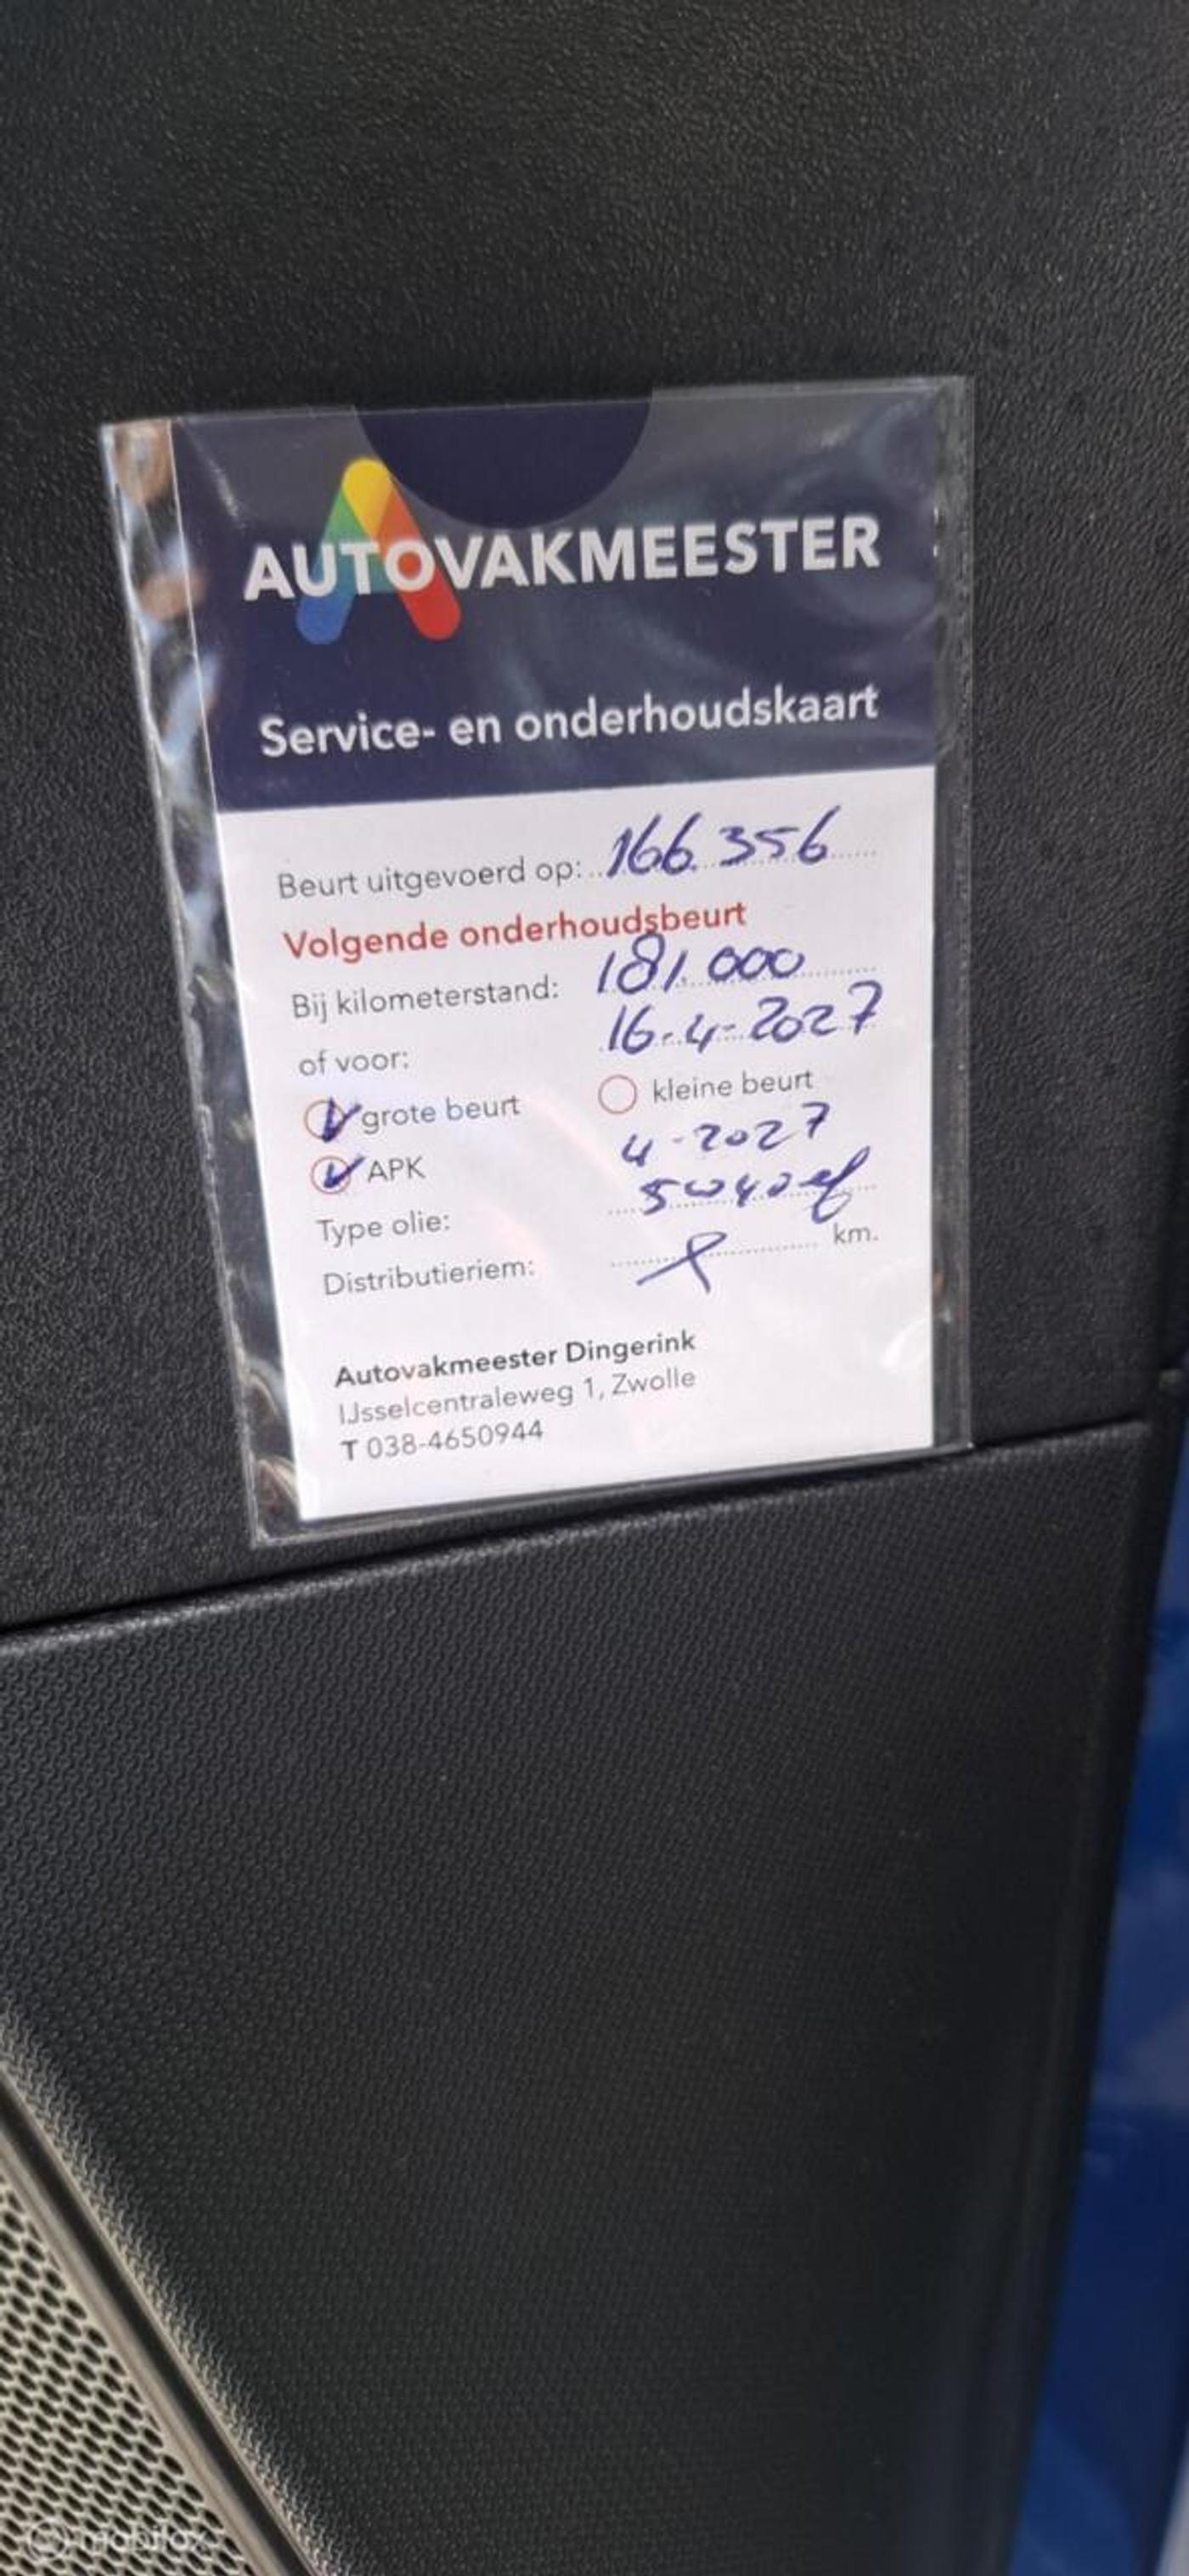 AUTOVAKMEESTER
Service- en onderhoudskaart
Beurt uitgevoerd op: 166.356
Volgende onderhoudsbeurt
Bij kilometerstand: 181.000
of voor: 16-4-2027
grote beurt kleine beurt
APK 4-2027
Type olie: 5w40
Distributieriem: km.
Autovakmeester Dingerink
IJsselcentraleweg 1, Zwolle
T 038-4650944
mobilox